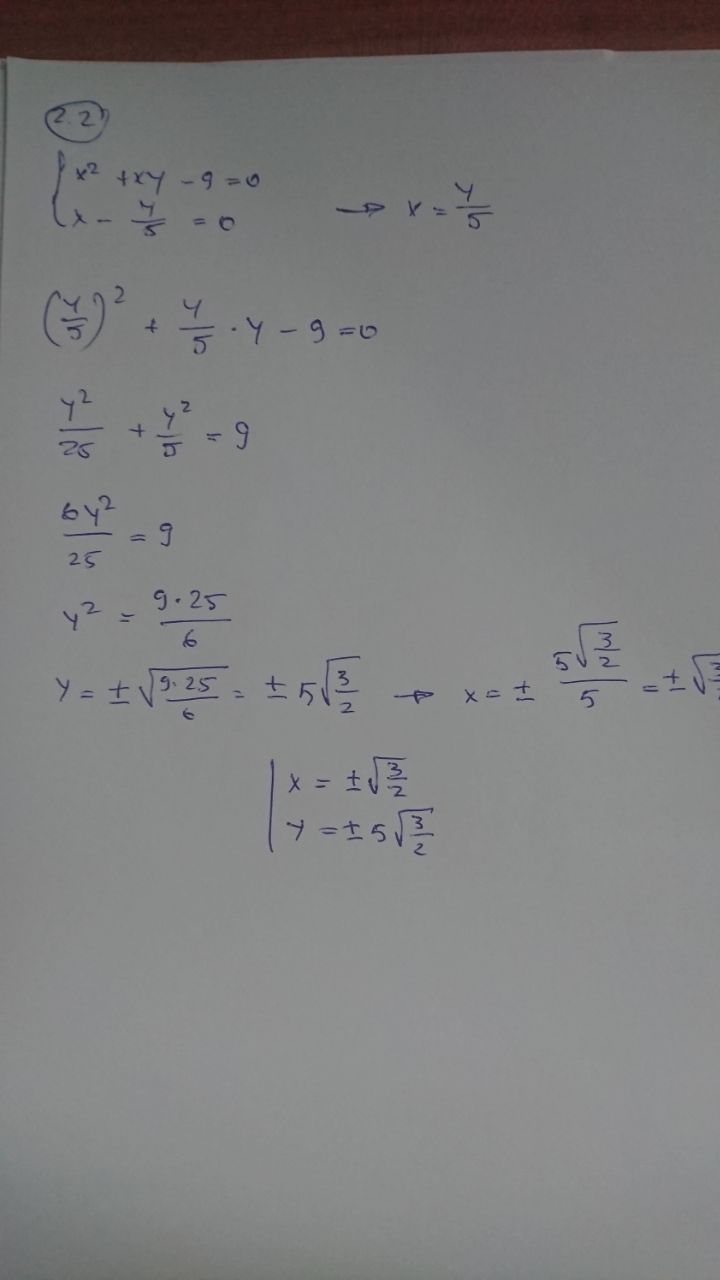 2.2
{ x² + xy - 9 = 0
x - y/5 = 0 → x = y/5
(y/5)² + y/5 · y - 9 = 0
y²/25 + y²/5 = 9
6y²/25 = 9
y² = 9·25/6
y = ±√(9·25/6) = ±5√(3/2) → x = ± 5√(3/2)/5 = ±√
| x = ±√(3/2)
y = ±5√(3/2)